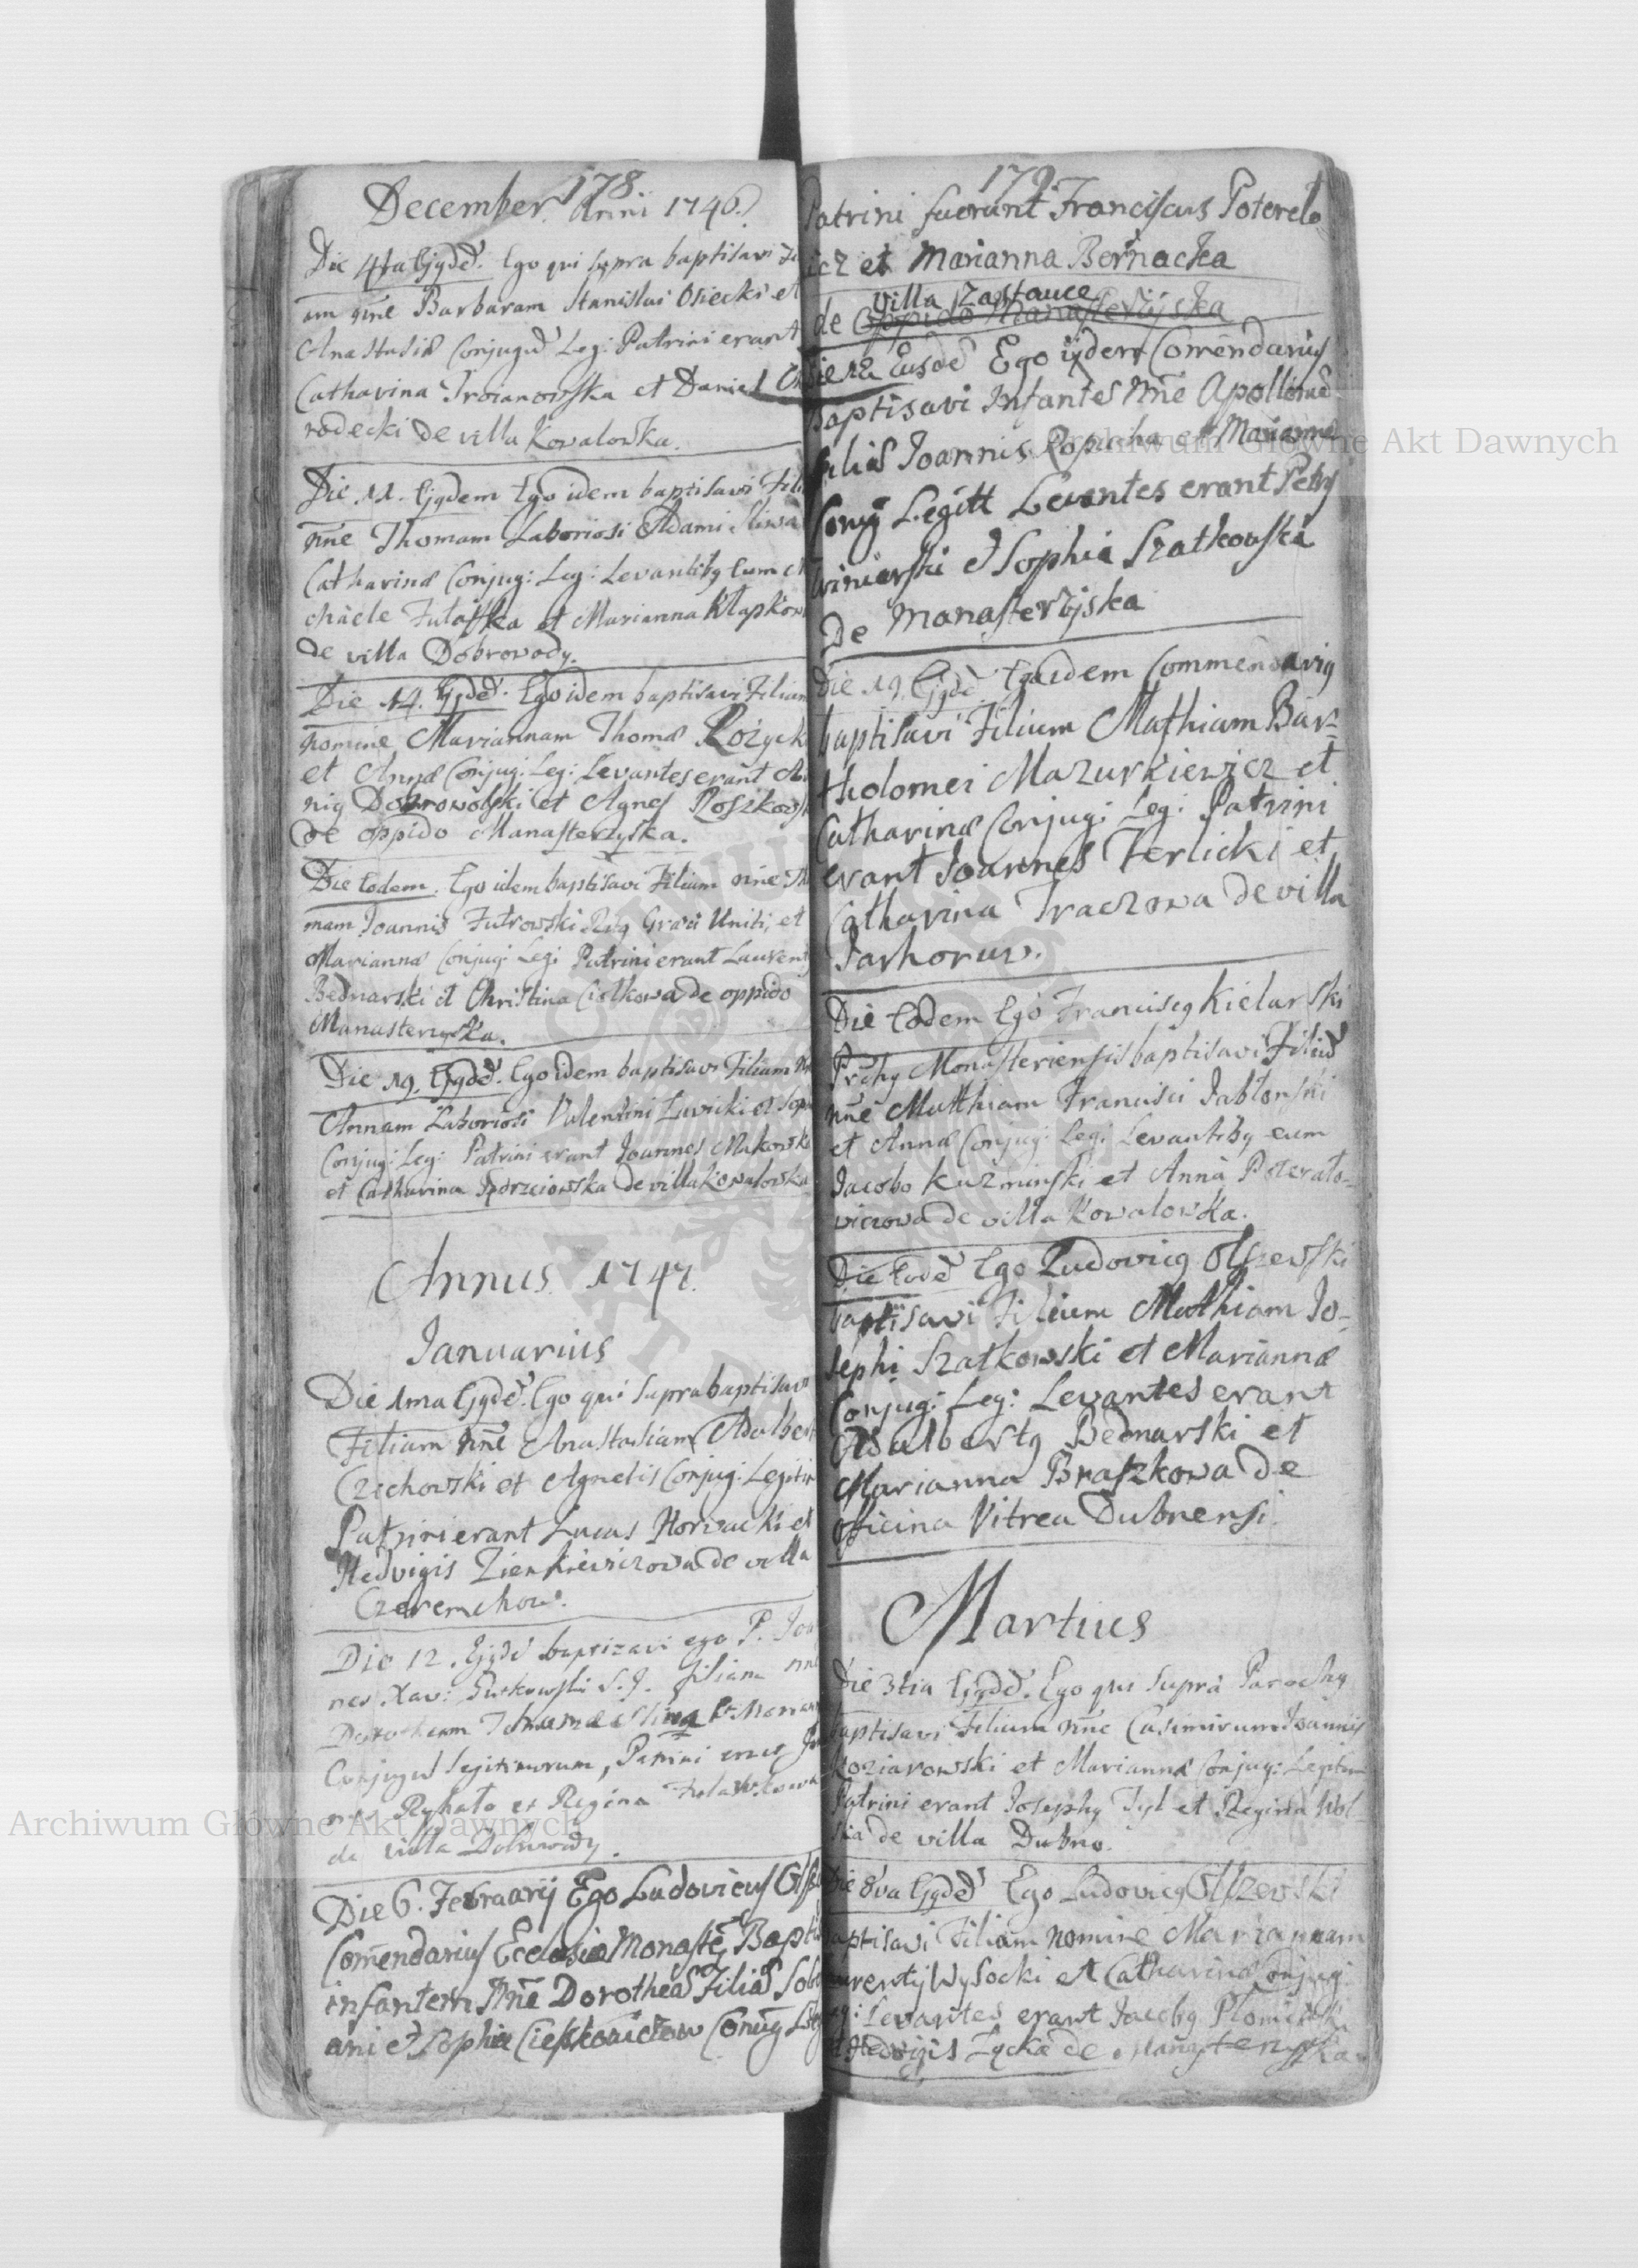 178.
December Anni 1746.
Die 4ta Ejqdē. Ego qui supra baptisavi Fi
am nne Barbaram Stanislai Osiecki et
Anastasiæ Conjugū Leg: Patrini erant
Catharina Troianowska et Daniel
rodecki de villa Kowalowka.
Die 11. Ejqdem Ego idem baptisavi Fili
nne Thomam Laboriosi Adami Sliwa
Catharinæ Conjug: Leg: Levantibq eum
chaele et Marianna Kłapkow
de villa Dobrowody.
Die 14. Ejqdē. Ego idem baptisavi Filiam
nomine Mariannam Thomæ Rożyck
et Annæ Conjug: Leg: Levantes erant
niq Dobrowolski et Agnes Roszkows
de oppido Manasterzyska.
Die Eodem. Ego idem baptisavi Filium nne Th
mam Joannis Futrowski Ritq Græci Uniti, et
Mariannæ Conjug: Legi Patrini erant Laurens
Bednarski et Christina Ciołkowa de oppido
Manasterzyska.
Die 19. Ejqdē. Ego idem baptisavi Filiam
Annam Laboriosi Valentini Zuvicki et Sop
Conjug: Leg: Patrini erant Joannes Makowsk
et Catharina de villa Kowalowka
Annus 1747.
Januarius
Die 1ma Ejqdē. Ego qui supra baptisavi
Filiam nne Anastasiam Adalber
Czechowski et Agnetis Conjug: Legitim
Patrini erant Lucas Horwacki et
Hedvigis Zienkiewiczowa de villa
Czeremchow.
Die 12. Ejqdē baptizavi ego P. Joa
nes Xav: Gutkowski S. J. filiam nne
Dorotheam et Marian
Conjugū legitimorum, Patrini erant Jo
nes Rychato et Regina
de villa Dobrowody.
Die 6. Februarij Ego Ludovicus Olsz
Comendarius Ecclesiæ Monastē Bapti
infantem Nne Dorotheā Filiā Seb
ani et Sophiæ Conug Leg
179.
Patrini fuerunt Franciscus Poterelo
icz et Marianna Bernacka
villa Zastauce
de oppido Manasterzijska
Die 12 Eusdē Ego ijdem Comendarius
Baptisavi Infantes Nne Apolloniā
filiā Joannis Ropucha et Mariannæ
Conug Legitt Levantes erant Petrq
Winiarski et Sophia Szatkowska
De Manasterzijska
Die 19. Ejqdē. Ego idem Commendariq
baptisavi Filium Mathiam Bar-
tholomei Mazurkiewicz et
Catharinæ Conjug: Leg: Patrini
erant Joannes Terlicki et
Catharina Traczowa de villa
Jarhorow.
Die Eodem Ego Franciscq Kielarski
Prchq Monasteriensis baptisavi Filiū
nne Matthiam Francisci Jabłonski
et Annæ Conjug: Leg: Levantibq eum
Jacobo Kuzminski et Anna Poterało-
wiczowa de villa Kowalowka.
Die Eodē Ego Ludovicq Olszewski
baptisavi Filium Mathiam Jo-
sephi Szatkowski et Mariannæ
Conjug: Leg: Levantes erant
Adalbertq Bednarski et
Marianna Braszkowa de
officina Vitrea Dubnensi.
Martius
Die 3tia Ejqdē. Ego qui supra Parochq
baptisavi Filium nne Casimirum Joannis
Koziarowski et Mariannæ Conjug: Legitim
Patrini erant Josephq Tyl et Regina Wol-
ska de villa Dubno.
Die 8va Ejqdē Ego Ludovicq Olszewski
baptisavi Filiam nomine Mariannam
Laurentij Wysocki et Catharinæ Conjug:
Leg: Levantes erant Jacobq
et Hedvigis Łycka de Manasterzyska.
Archiwum Główne Akt Dawnych
Archiwum Główne Akt Dawnych